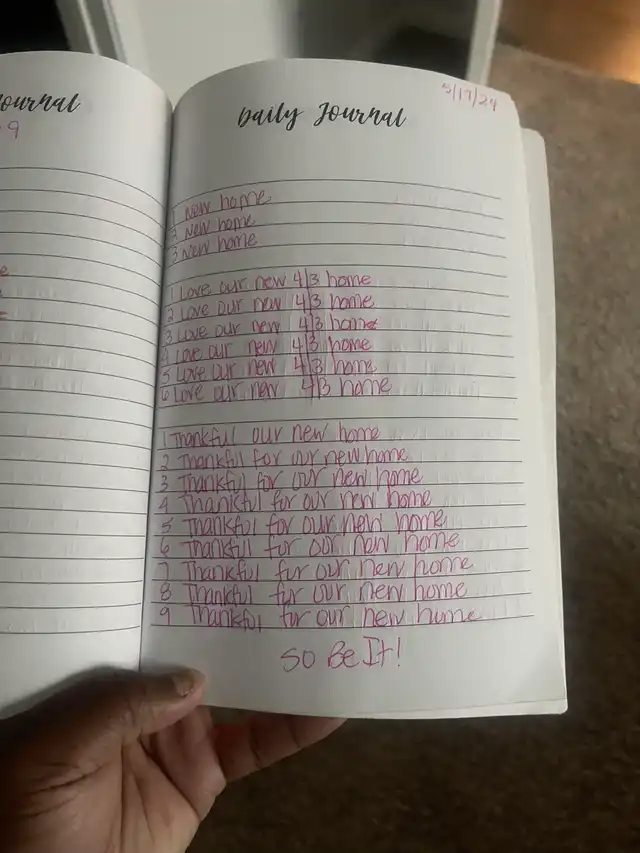 ournal
9
Daily Journal
5/17/24
1 New home
2 New home
3 New home
1 Love our new 4|3 home
2 Love our new 4|3 home
3 Love our new 4|3 home
4 Love our new 4|3 home
5 Love our new 4|3 home
6 Love our new 4|3 home
1 Thankful our new home
2 Thankful for our new home
3 Thankful for our new home
4 Thankful for our new home
5 Thankful for our new home
6 Thankful for our new home
7 Thankful for our new home
8 Thankful for our new home
9 Thankful for our new home
So Be It!